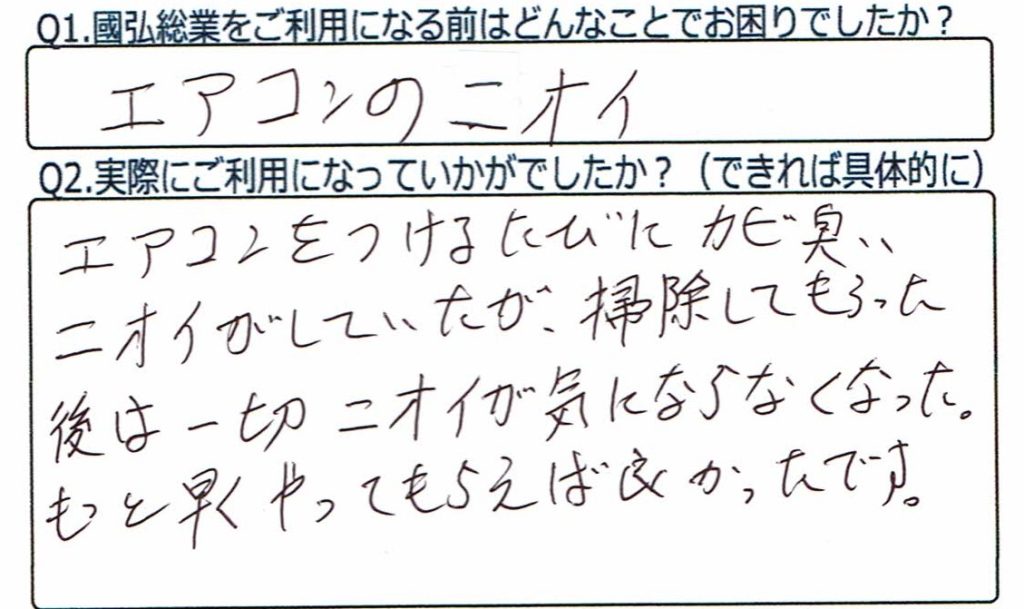 Q1.國弘総業をご利用になる前はどんなことでお困りでしたか？
エアコンのニオイ
Q2.実際にご利用になっていかがでしたか？（できれば具体的に）
エアコンをつけるたびにカビ臭い
ニオイがしていたが、掃除してもらった
後は一切ニオイが気にならなくなった。
もっと早くやってもらえば良かったです。